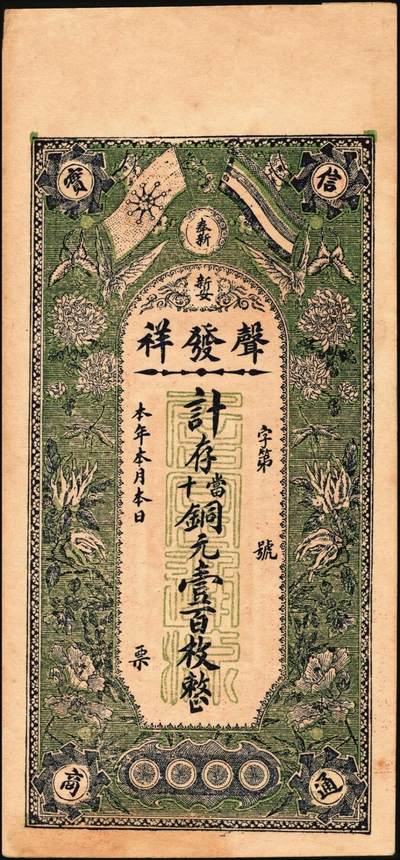 奉新
聲發祥
字第 號
計存當十銅元壹百枚整
本年本月本日 票
信
通
商